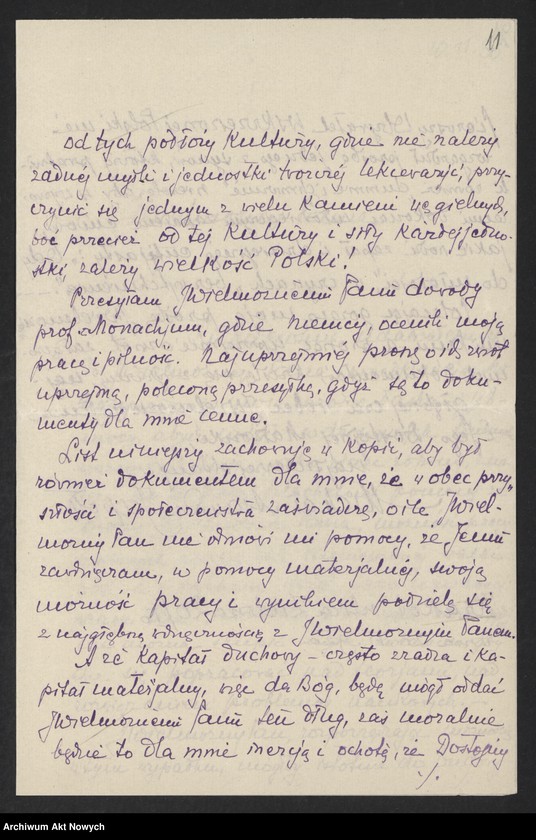 11
od tych podłoży Kultury, gdzie nie należy
żadnej myśli i jednostki twórczej lekceważyć, przy-
czynić się jednym z wielu Kamieni węgielnych,
boć przecież od tej Kultury i siły każdej jedno-
stki, zależy wielkość Polski!
Przesyłam JWielmożnemu Panu dowody
prof. Monachjum, gdzie Niemcy, ocenili moją
pracę i pilność. Najuprzejmiej proszę o ich zwrot
uprzejmą, poleconą przesyłką, gdyż są to doku-
menty dla mnie cenne.
List niniejszy zachowuję w Kopii, aby był
również dokumentem dla mnie, że wobec przy-
szłości i społeczeństwa zaświadczę, o ile JWiel-
możny Pan nie odmówi mi pomocy, że Jemu
zawdzięczam, w pomocy materjalnej, swoją
możność pracy i wynikiem podzielę się
z najgłębszą wdzięcznością z JWielmożnym Panem.
A że Kapitał duchowy – często zradza i ka-
pitał materjalny, więc da Bóg, będę mógł oddać
JWielmożnemu Panu ten dług, zaś moralnie
będzie to dla mnie inercją i ochotą, że Dostojny
./.
Archiwum Akt Nowych